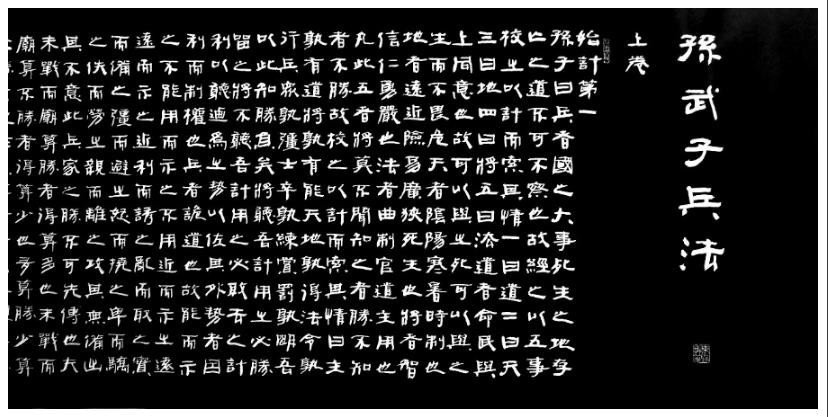 孫武子兵法
上卷
始計第一
孫子曰兵者國之大事死生之地存
亡之道不可不察也故經之以五事
校之以計而索其情一曰道二曰天
三曰地四曰將五曰法道者令民與
上同意也故可以與之死可以與之
生而不畏危天者陰陽寒暑時制也
地者遠近險易廣狹死生也將者智
信仁勇嚴也法者曲制官道主用也
凡此五者將莫不聞知之者勝不知
者不勝故校之以計而索其情曰主
孰有道將孰有能天地孰得法令孰
行兵眾孰強士卒孰練賞罰孰明吾
以此知勝負矣將聽吾計用之必勝
留之將不聽吾計用之必敗去之計
利以聽迺為之勢以佐其外勢者因
利而制權也兵者詭道也故能而示
之不能用而示之不用近而示之遠
遠而示之近利而誘之亂而取之實
而備之彊而避之怒而撓之卑而驕
之佚而勞之親而離之攻其無備出
其不意此兵家之勝不可先傳也夫
未戰而廟算勝者得算多也未戰而
廟算不勝者得算少也多算勝少算